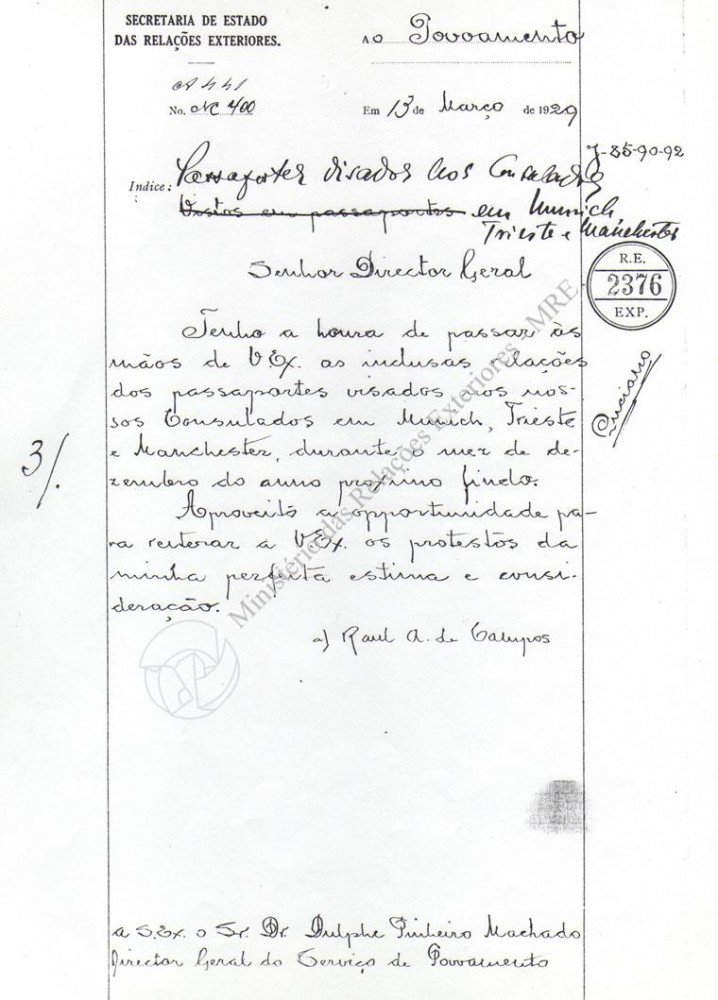 SECRETARIA DE ESTADO
DAS RELAÇÕES EXTERIORES.
AO Povoamento
No. NC 400
Em 13 de Março de 1929
7-85-90-92
Indice: Passaportes visados nos Consulados
Vistos em passaportes em Munich
Trieste e Manchester
R.E.
2376
EXP.
Senhor Director Geral
Tenho a honra de passar às
mãos de V Ex. as inclusas relações
dos passaportes visados nos nos-
sos Consulados em Munich, Trieste
e Manchester, durante o mez de de-
zembro do anno proximo findo.
3/.
Aproveito a opportunidade pa-
ra reiterar a V. Ex. os protestos da
minha perfeita estima e consi-
deração.
a) Raul A. de Campos
Ministério das Relações Exteriores - MRE
a S. Ex. o Sr. Dr. Dulphe Pinheiro Machado
Director Geral do Serviço de Povoamento